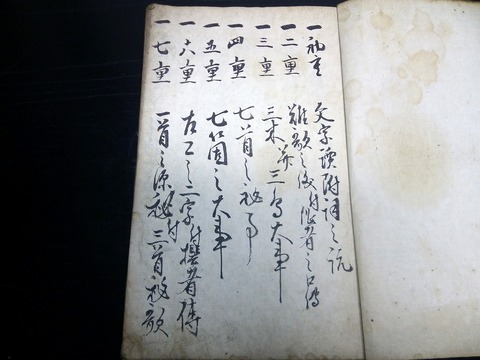 一初重 文字読附詞之説
一二重 難歌之後付作者之口傳
一三重 三木并三鳥大事
一四重 七首之秘事
一五重 七ケ箇之大事
一六重 古今之二字付撰者傳
一七重 一首之深秘付三首秘歌